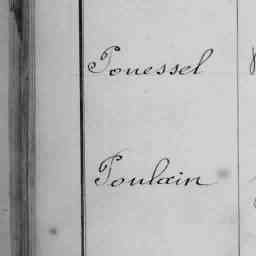 Pouessel
Poulain